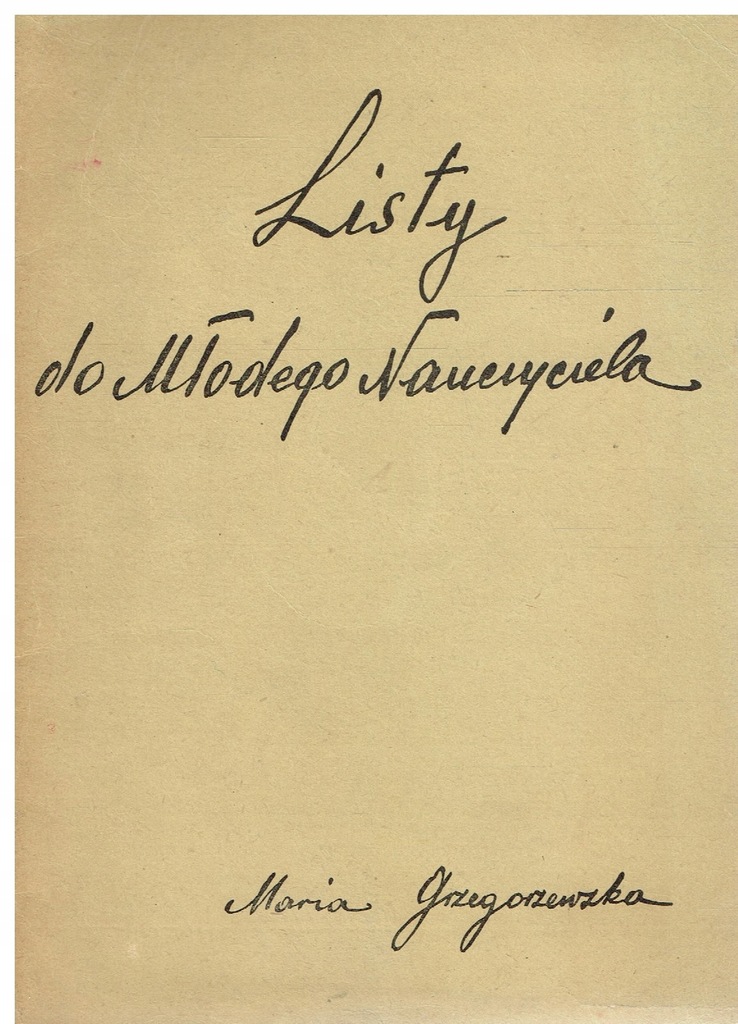 Listy
do Młodego Nauczyciela
Maria Grzegorzewska